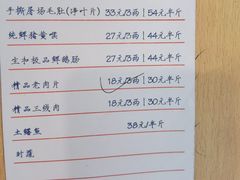 手撕屠场毛肚(净叶片) 33元/3两|54元半斤
纯鲜猪黄喉 27元/3两|44元/半斤
宝和极品鲜鹅肠 27元/3两|44元/半斤
精品老肉片 18元/3两|30元/半斤
精品三线肉 18元/3两|30元/半斤
土鳝鱼 38元/半斤